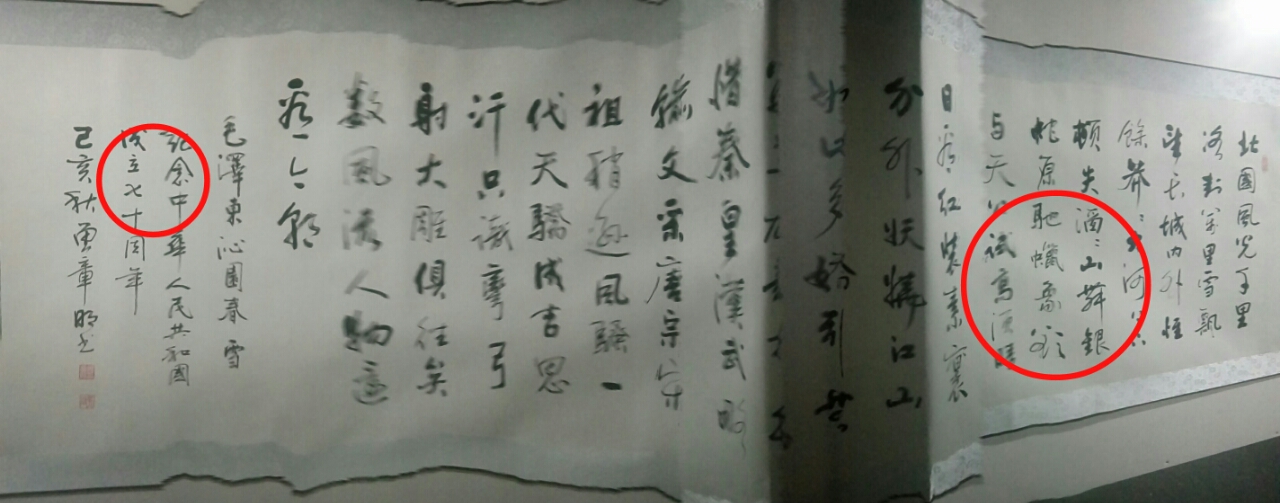 北國風光千里
冰封萬里雪飄
望長城内外惟
餘莽〻大河
頓失滔〻山舞銀
蛇原馳蠟象欲
与天公試高須晴
日看紅裝素裹
分外妖嬈江山
如此多嬌引無
惜秦皇漢武略
輸文采唐宗宋
祖稍遜風騷一
代天驕成吉思
汗只識彎弓
射大雕俱往矣
數風流人物還
看今朝
毛澤東沁園春雪
紀念中華人民共和國
成立七十周年
己亥秋勇章明書